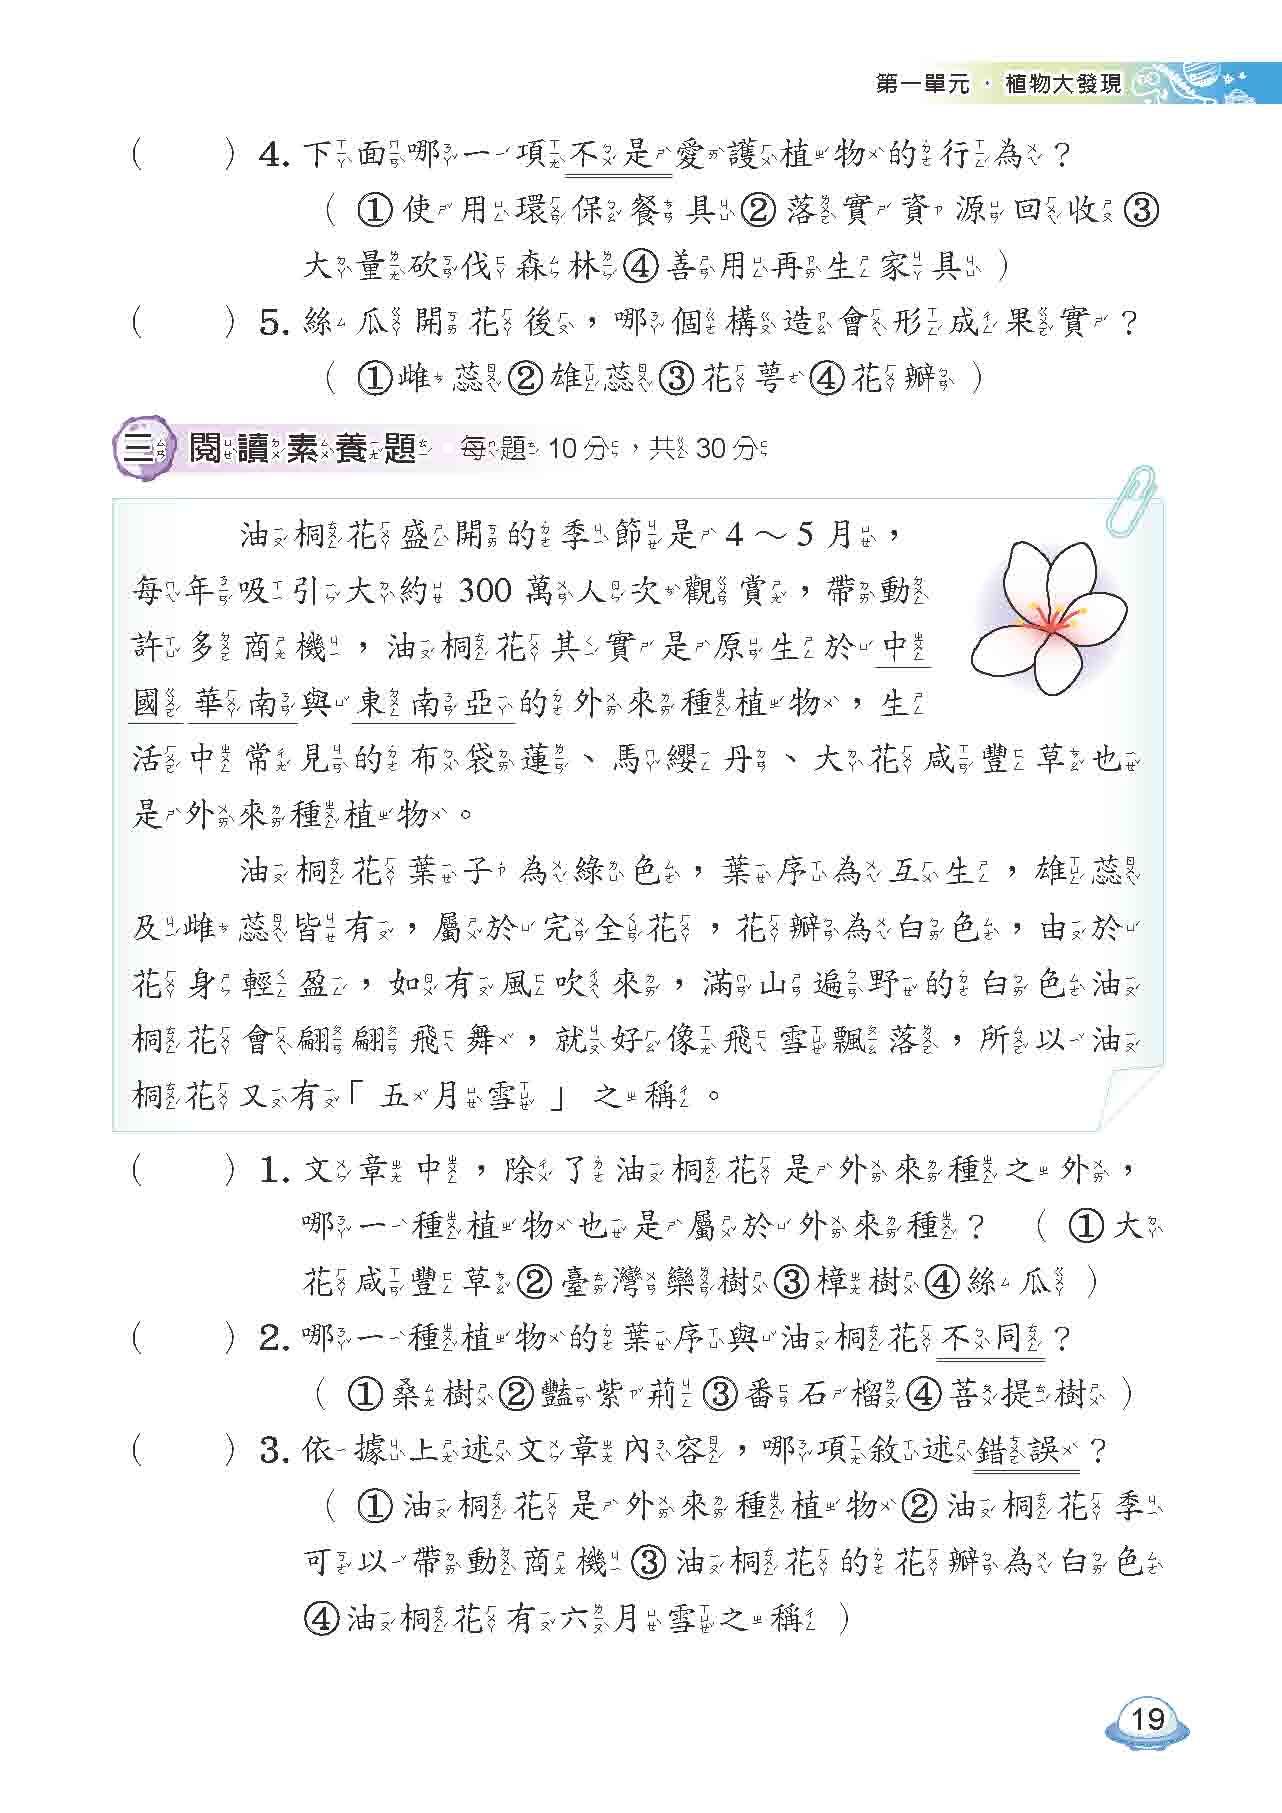 第一單元・植物大發現
（　　）4. 下面哪一項不是愛護植物的行為？
（①使用環保餐具②落實資源回收③
大量砍伐森林④善用再生家具）
（　　）5. 絲瓜開花後，哪個構造會形成果實？
（①雌蕊②雄蕊③花萼④花瓣）
三 閱讀素養題 每題10分，共30分
油桐花盛開的季節是4～5月，
每年吸引大約300萬人次觀賞，帶動
許多商機，油桐花其實是原生於中
國華南與東南亞的外來種植物，生
活中常見的布袋蓮、馬纓丹、大花咸豐草也
是外來種植物。
油桐花葉子為綠色，葉序為互生，雄蕊
及雌蕊皆有，屬於完全花，花瓣為白色，由於
花身輕盈，如有風吹來，滿山遍野的白色油
桐花會翩翩飛舞，就好像飛雪飄落，所以油
桐花又有「五月雪」之稱。
（　　）1. 文章中，除了油桐花是外來種之外，
哪一種植物也是屬於外來種？（①大
花咸豐草②臺灣欒樹③樟樹④絲瓜）
（　　）2. 哪一種植物的葉序與油桐花不同？
（①桑樹②豔紫荊③番石榴④菩提樹）
（　　）3. 依據上述文章內容，哪項敘述錯誤？
（①油桐花是外來種植物②油桐花季
可以帶動商機③油桐花的花瓣為白色
④油桐花有六月雪之稱）
19